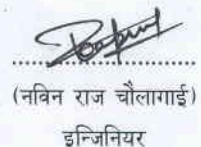 (नविन राज चौलागाई)
इन्जिनियर